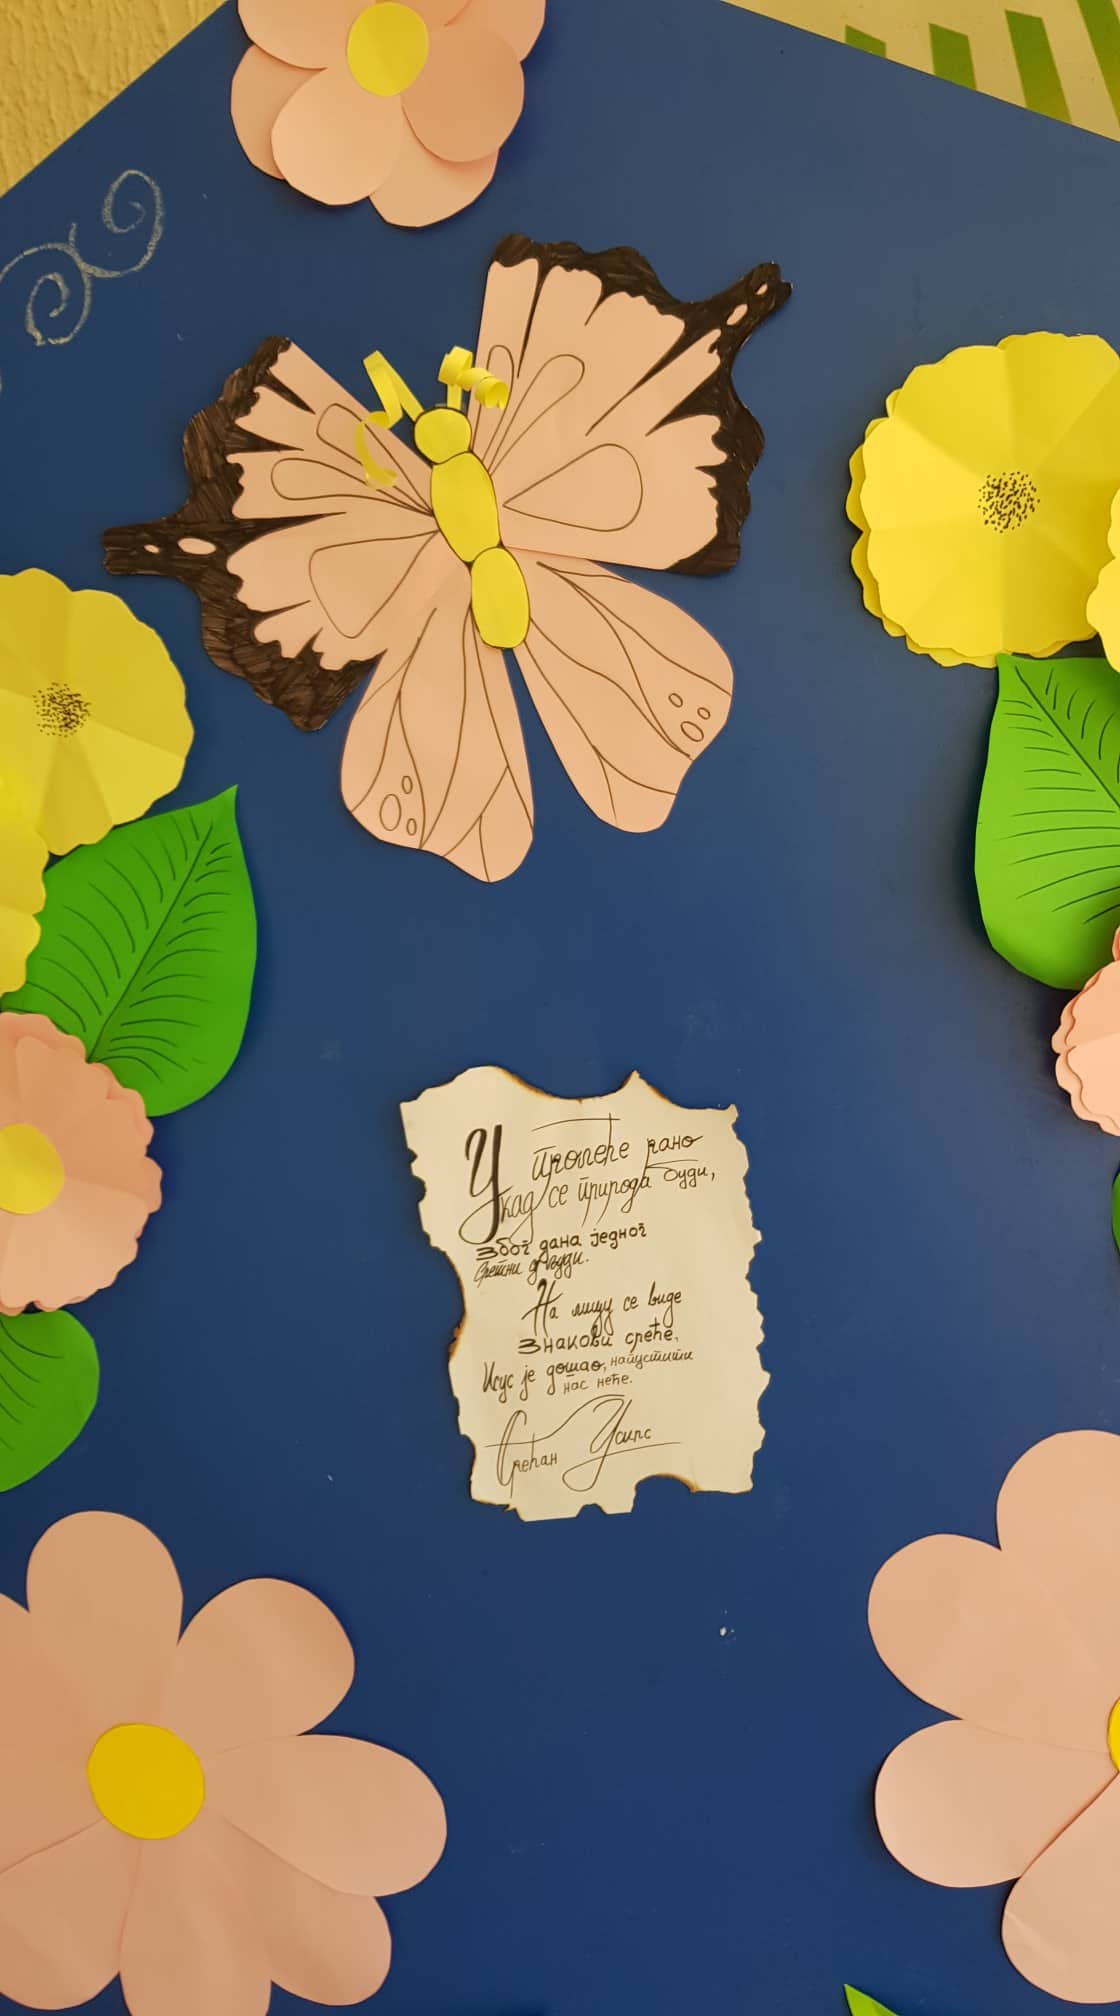 У пролеће рано
кад се природа буди,
због дана једног
сретни су људи.
На лицу се виде
знакови среће,
Исус је дошао, напустити
нас неће.
Срећан Ускрс